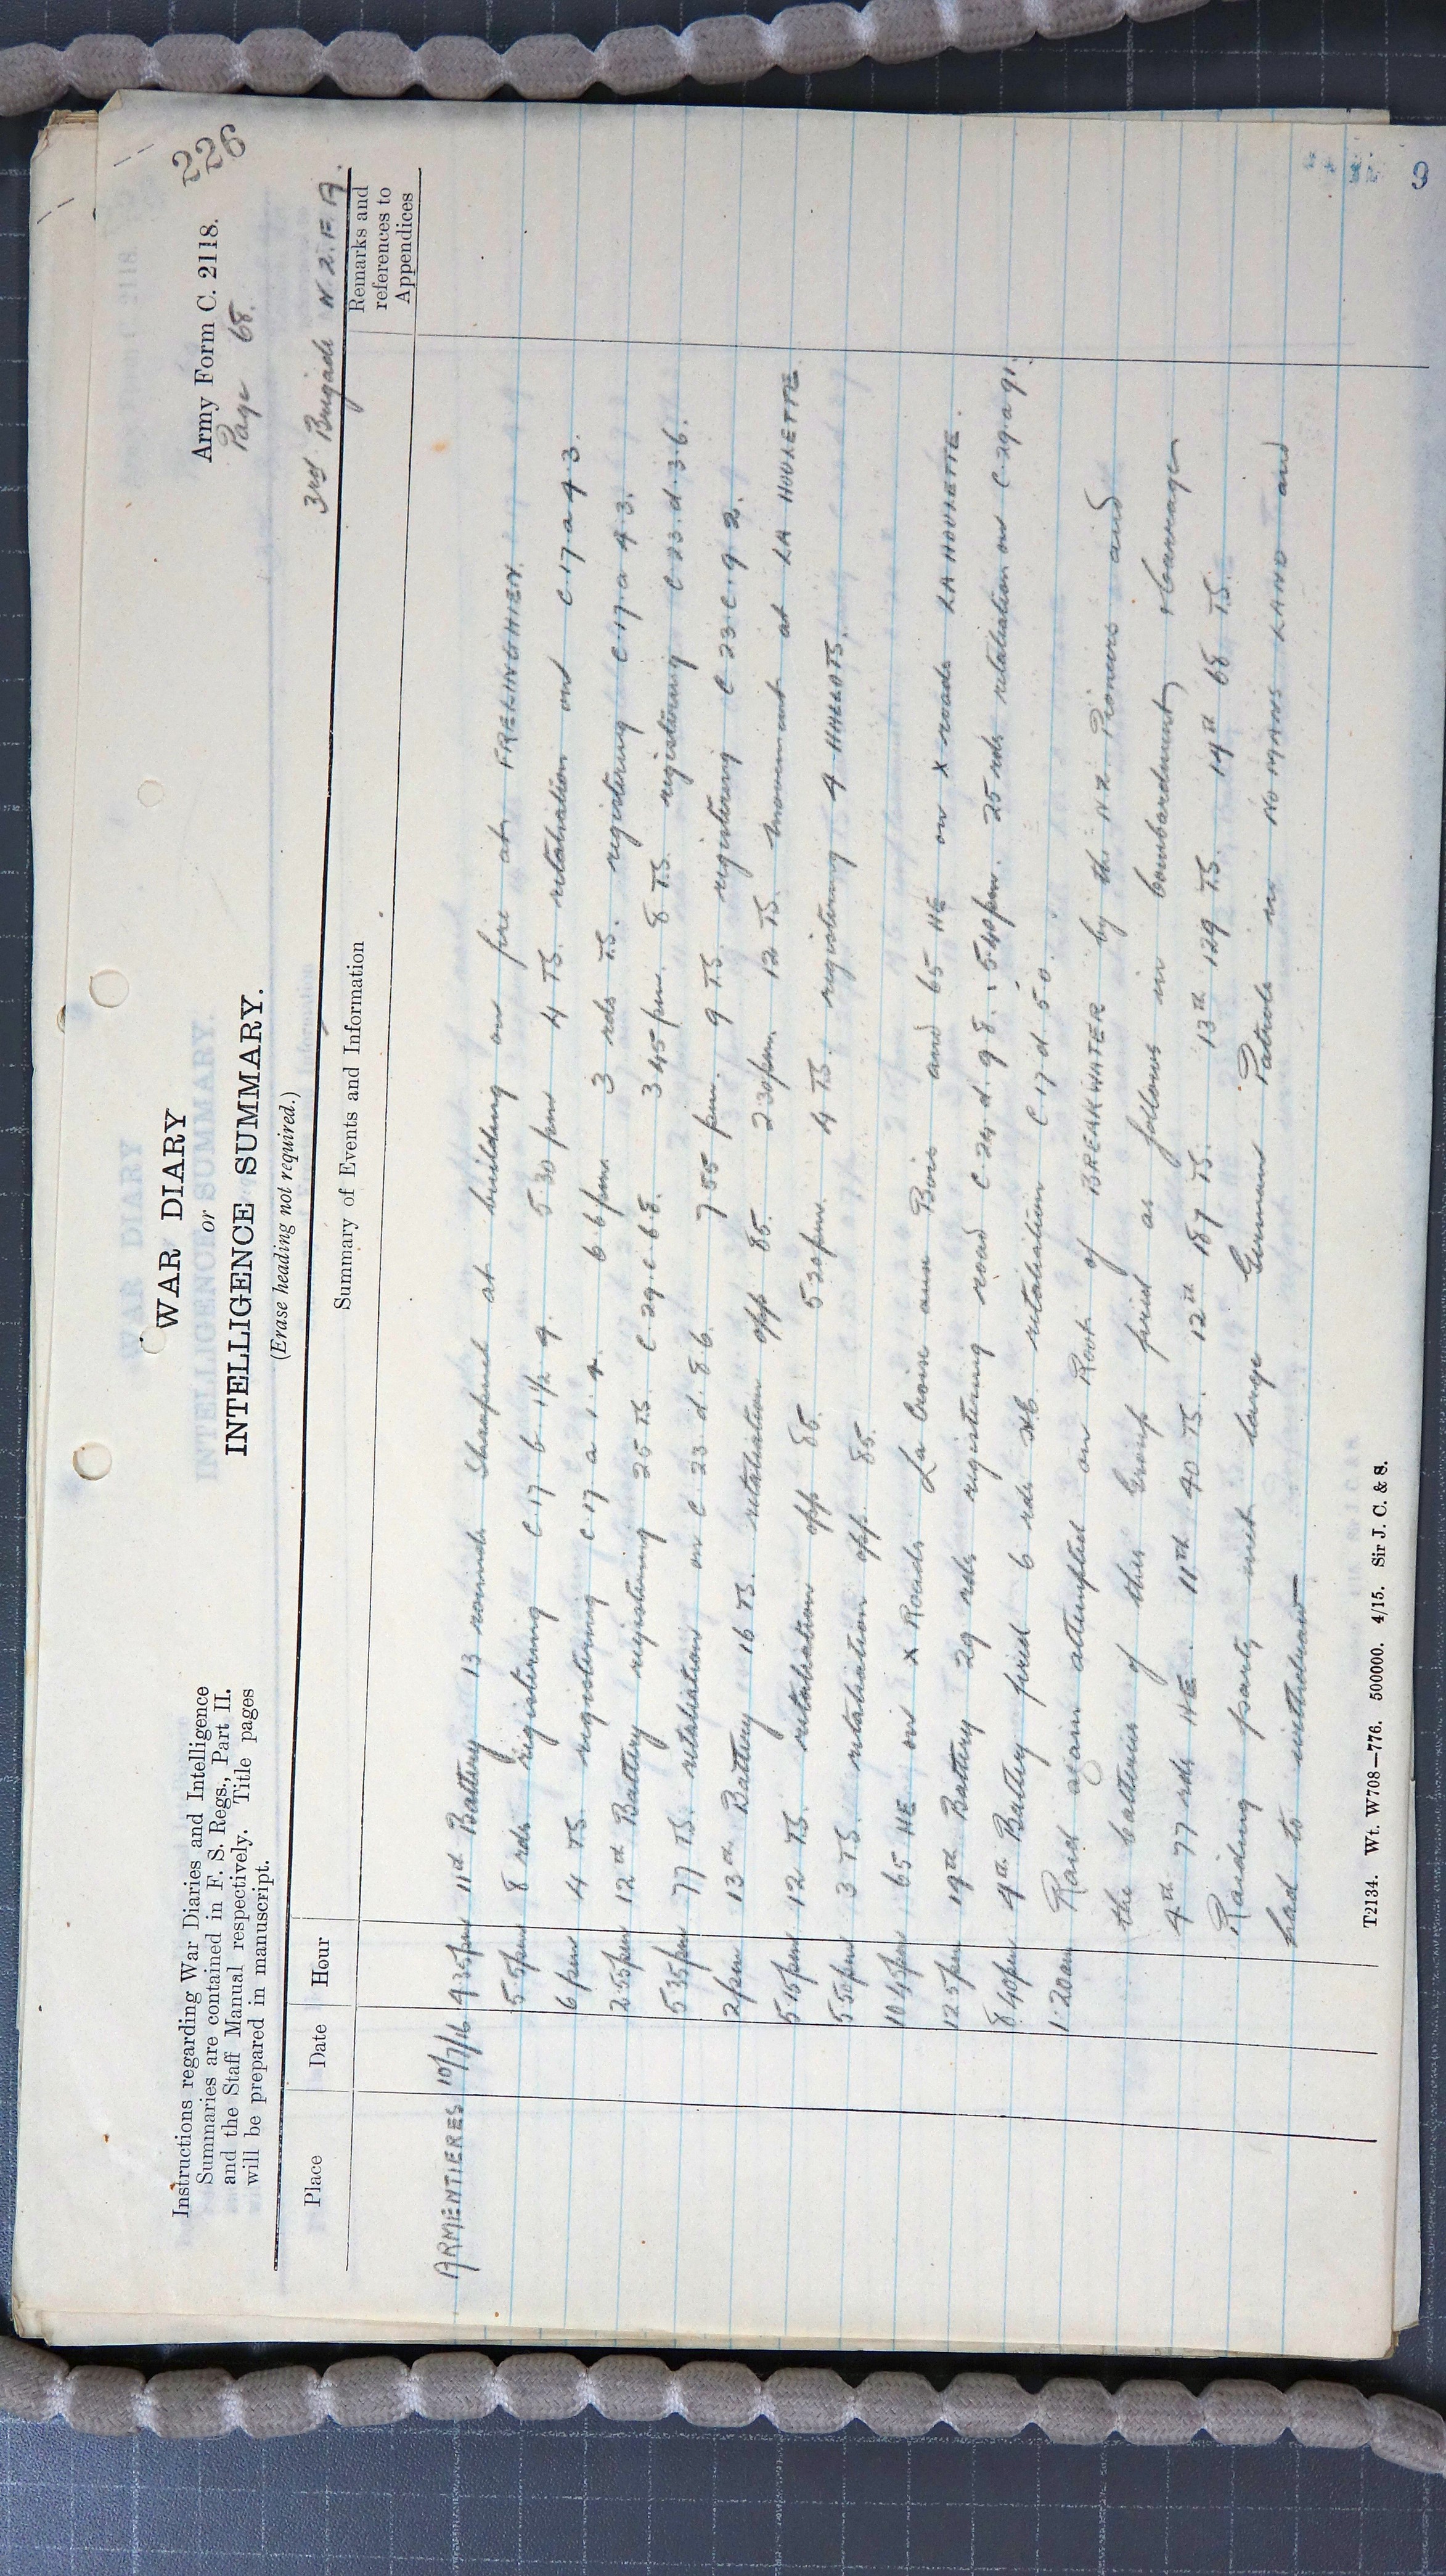 226
Army Form C. 2118.
Page 68.
WAR DIARY
or
INTELLIGENCE SUMMARY.
(Erase heading not required.)
Instructions regarding War Diaries and Intelligence
Summaries are contained in F. S. Regs., Part II.
and the Staff Manual respectively. Title pages
will be prepared in manuscript.
3rd Brigade N.Z.F.A.
Place Date Hour Summary of Events and Information Remarks and references to Appendices
ARMENTIERES 10/7/16 4 35pm 11th Battery 13 rounds Shrapnel at building on fire at FRELINGHIEN.
5 5pm 8 rds. registering C.17.b.1½.9. 5.30 pm 4 TS. retaliation on C.17.a.4.3.
6 pm 4 TS. registering C.17.a.1.4. 6 6pm 3 rds TS. registering C.17.a.4.3.
2 55pm 12th Battery registering 25 TS. C.29.c.6.8. 3 45pm. 8 TS. registering C.23.d.3.6.
5 35pm 77 TS. retaliation on C.23.d.8.6. 7 55 pm. 9 TS. registering C.23.c.9.2.
2 pm 13th Battery 16 TS. retaliation opp 85. 2 30pm. 12 TS. movement at LA HOULETTE.
5 15pm 12 TS. retaliation opp 85. 5 20pm. 4 TS. registering 4 HALLOTS.
5 50pm 3 TS. retaliation opp. 85.
10 45pm 65 HE on X Roads La Croix aux Bois and 65 HE on X roads LA HOULETTE.
12 5pm 19th Battery 29 rds registering road C.24.d.9.8. 5.40pm. 25 rds retaliation on C.29.a.91.
8.40pm 4th Battery fired 6 rds HE. retaliation C.17.d.5.0.
1.20am Raid again attempted on Root of BREAKWATER by the NZ Pioneers and
the batteries of this Group fired as follows in bombardment, barrages
4th 77 rds HE. 11th 40 TS. 12th 187 TS. 13th 129 TS. 19th 68 TS.
Raiding party met large German Patrols in NO MANS LAND and
had to withdraw
T2134. Wt. W708—776. 500000. 4/15. Sir J. C. & S.
9